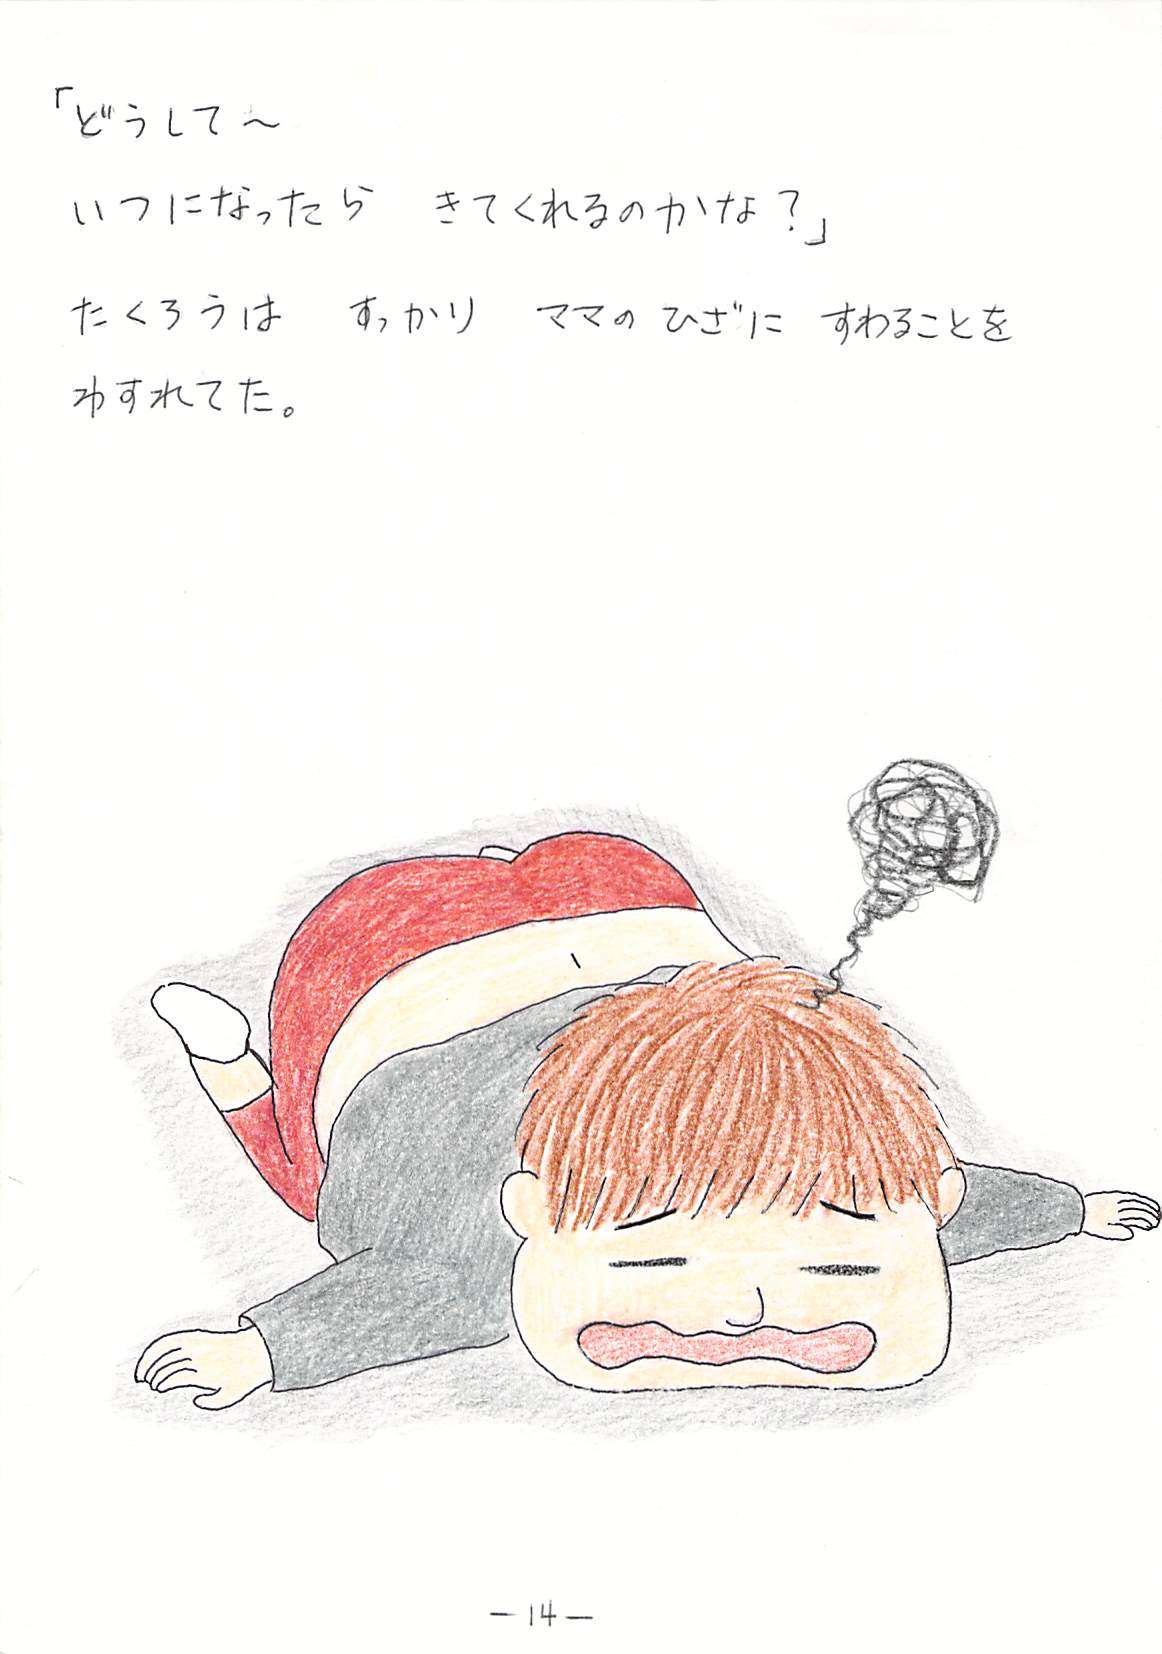 「どうして〜
いつになったら　きてくれるのかな？」
たくろうは　すっかり　ママのひざに　すわることを
わすれてた。
－14－